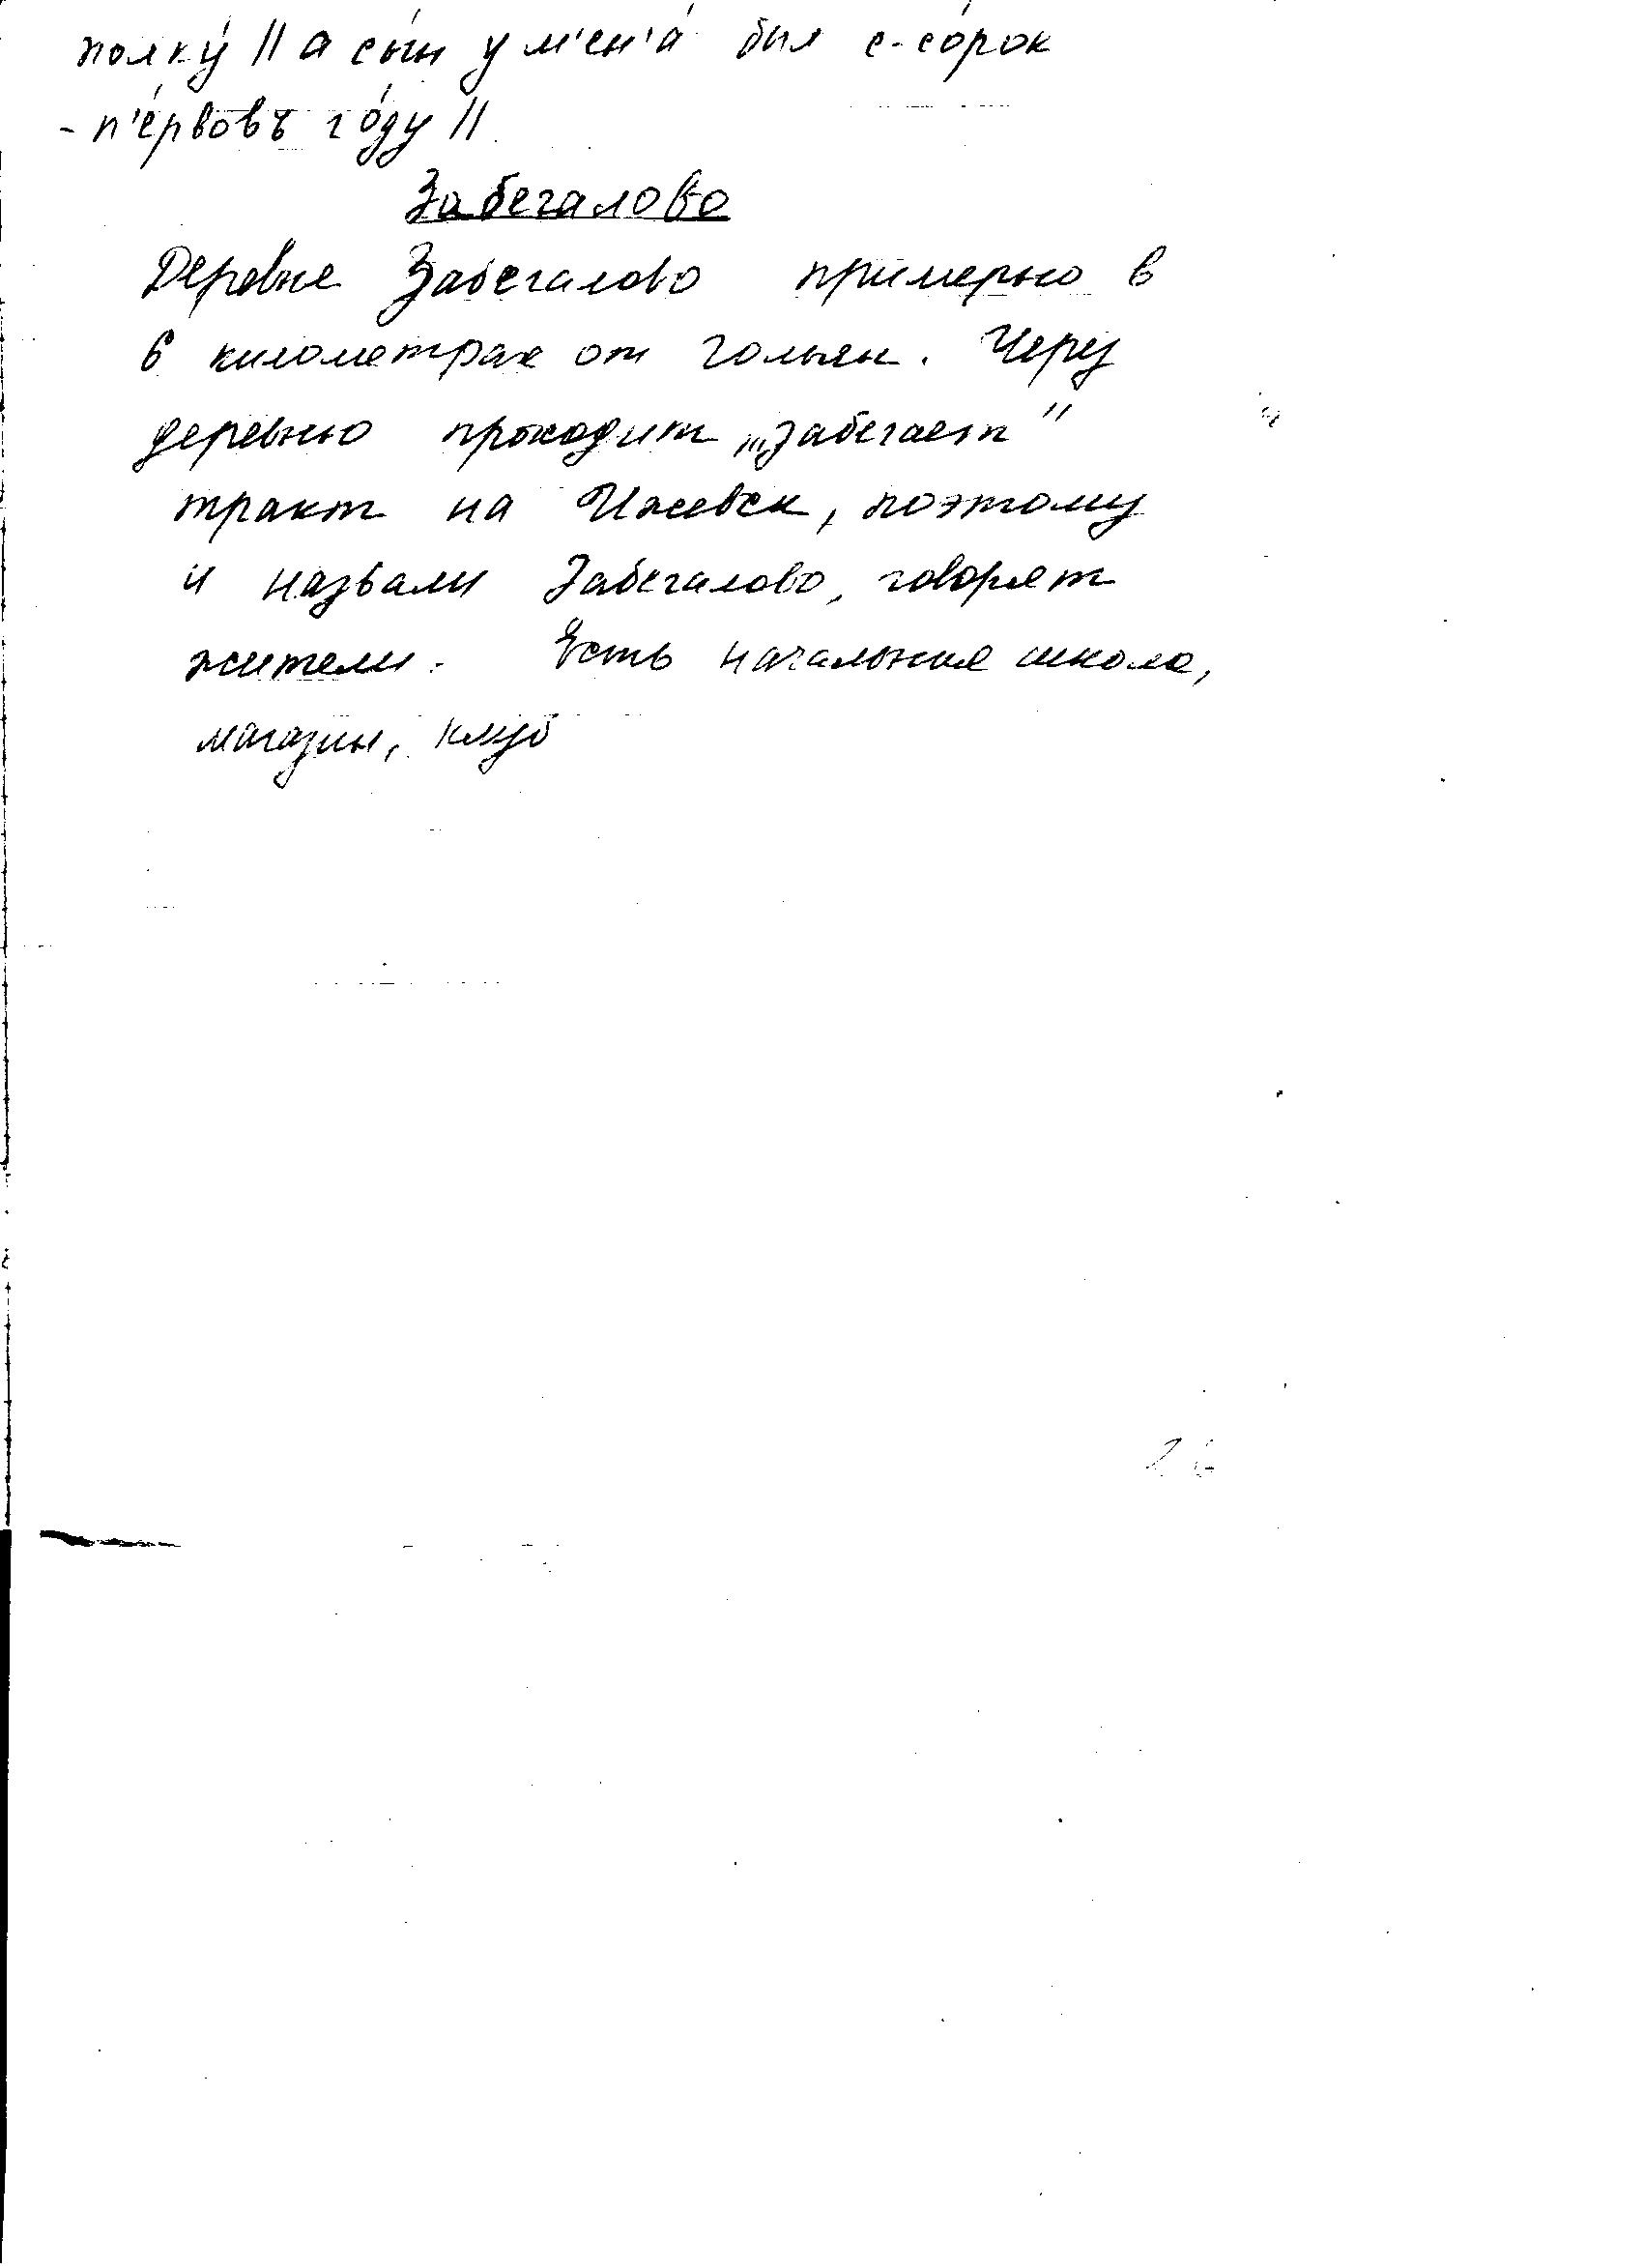 полку́ || а сы́н у м'ен'а́ был с-со́рок
- п'е́рвовъ го́ду ||
Забегалово
Деревня Забегалово примерно в
6 километрах от Гольян. Через
деревню проходит „забегает"
тракт на Ижевск, поэтому
и назвали Забегалово, говорят
жители. Есть начальная школа,
магазин, клуб